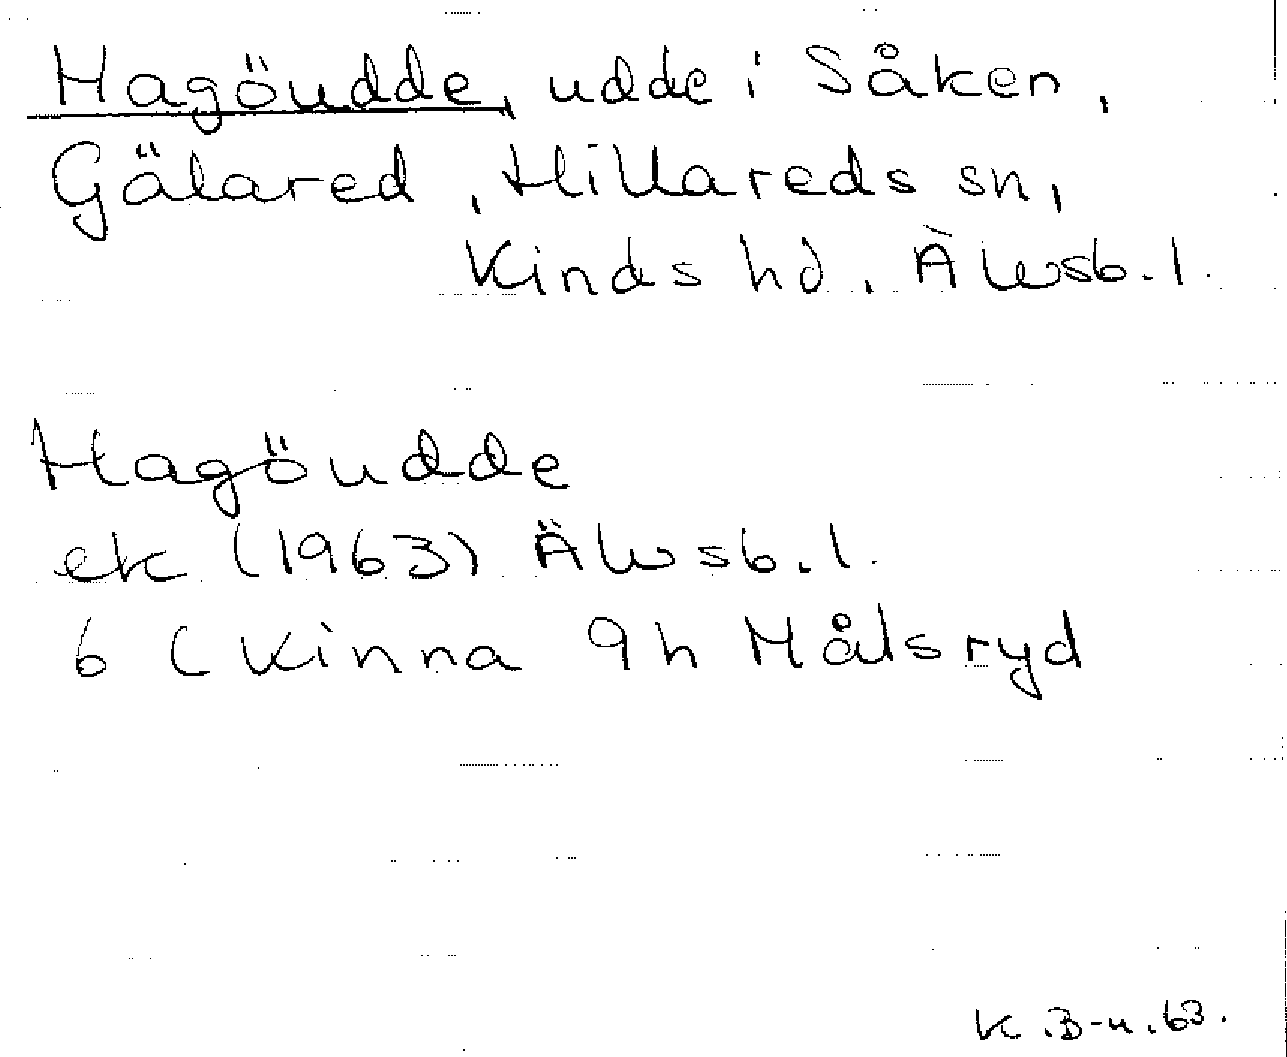 Hagöudde, udde i Såken,
Gälared, Hillareds sn,
Kinds hd. Älvsb. l.
Hagöudde
ek (1963) Älvsb. l.
6 C Kinna 9h Målsryd
K. B-n. 63.